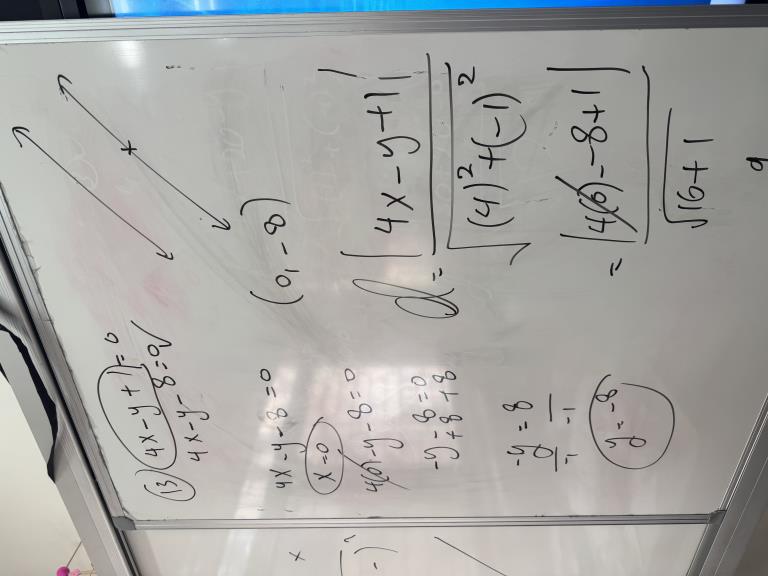 (13) 4x-y+1=0
4x-y-8=0 ✓
4x-y-8=0
x=0
4(0)-y-8=0
-y-8=0
+8 +8
-y=8
-1 -1
y=-8
(0,-8)
d = |4x-y+1|
√(4)²+(-1)²
= |4(0)--8+1|
√16+1
9